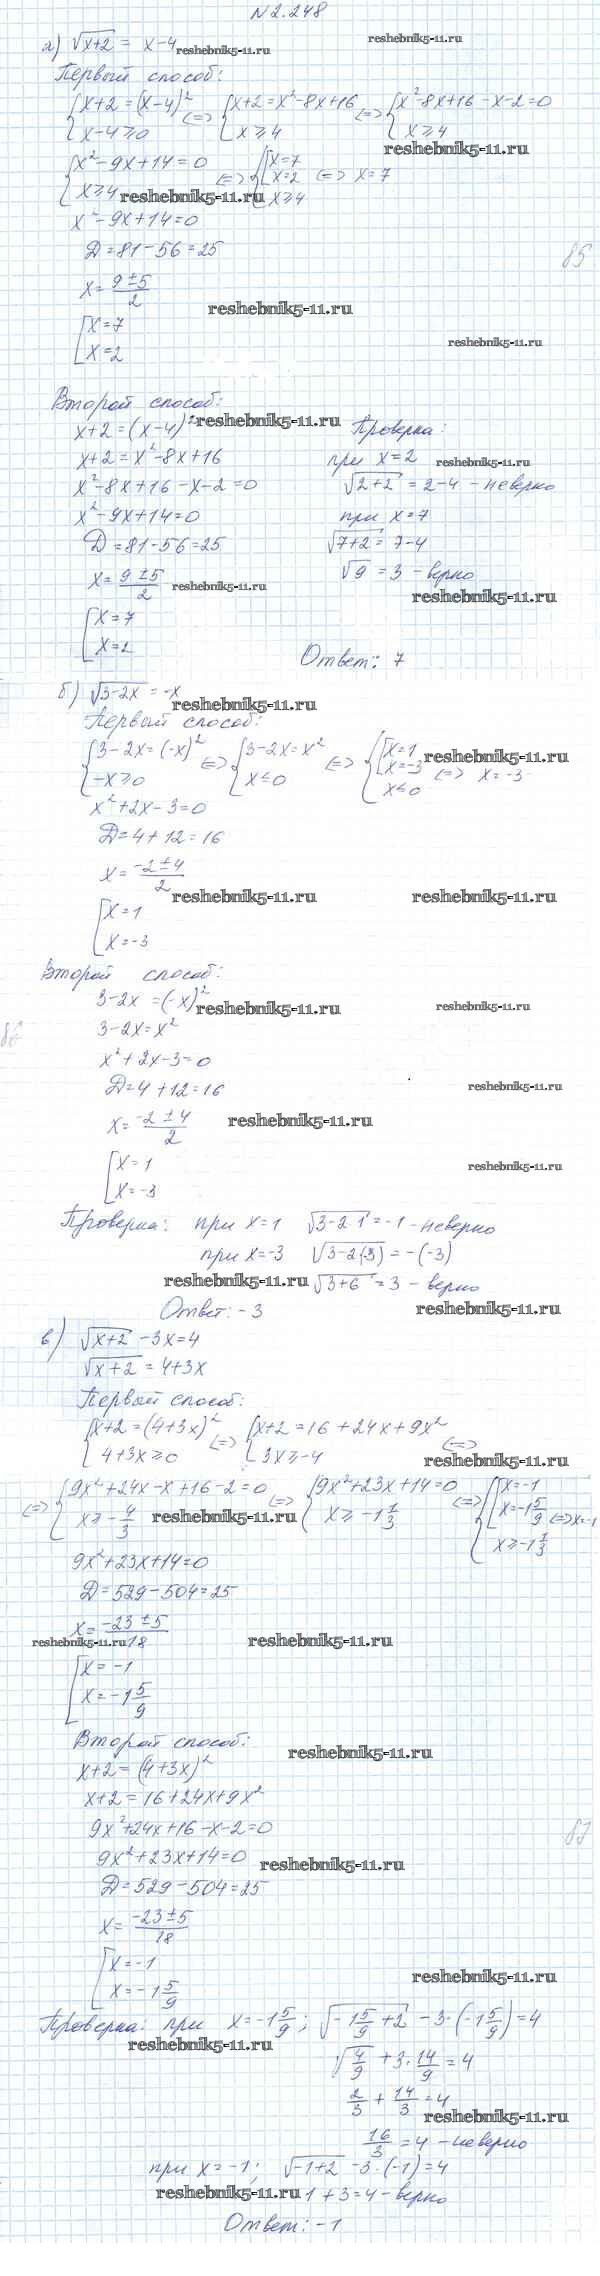 N 2.248
а) √x+2 = x-4 reshebnik5-11.ru reshebnik5-11.ru
Первый способ:
{x+2=(x-4)² x-4≥0 <=> {x+2=x²-8x+16 x≥4 <=> {x²-8x+16-x-2=0 x≥4
reshebnik5-11.ru
{x²-9x+14=0 x≥4 <=> {[x=7 x=2 x≥4 <=> x=7
reshebnik5-11.ru
x²-9x+14=0
Д=81-56=25
85
x=(9±5)/2
reshebnik5-11.ru
[x=7
x=2
reshebnik5-11.ru
Второй способ:
x+2=(x-4)² reshebnik5-11.ru Проверка:
x+2=x²-8x+16 при x=2 reshebnik5-11.ru
x²-8x+16-x-2=0 √2+2 = 2-4 - неверно
x²-9x+14=0 при x=7
Д=81-56=25 √7+2 = 7-4
x=(9±5)/2 reshebnik5-11.ru √9 = 3 - верно
reshebnik5-11.ru
[x=7
x=2
Ответ: 7
б) √3-2x = -x reshebnik5-11.ru
Первый способ:
{3-2x=(-x)² -x≥0 <=> {3-2x=x² x≤0 <=> {[x=1 x=-3 x≤0 <=> x=-3
reshebnik5-11.ru
x²+2x-3=0
Д=4+12=16
x=(-2±4)/2
reshebnik5-11.ru reshebnik5-11.ru
[x=1
x=-3
Второй способ:
3-2x=(-x)² reshebnik5-11.ru reshebnik5-11.ru
86
3-2x=x²
x²+2x-3=0
Д=4+12=16 reshebnik5-11.ru
x=(-2±4)/2 reshebnik5-11.ru
[x=1 reshebnik5-11.ru
x=-3
Проверка: при x=1 √3-2·1 = -1 - неверно
при x=-3 √3-2(-3) = -(-3)
reshebnik5-11.ru √3+6 = 3 - верно
Ответ: -3 reshebnik5-11.ru
в) √x+2 -3x=4
√x+2 = 4+3x
Первый способ:
{x+2=(4+3x)² 4+3x≥0 <=> {x+2=16+24x+9x² 3x≥-4 <=>
reshebnik5-11.ru
<=> {9x²+24x-x+16-2=0 x≥-4/3 <=> {9x²+23x+14=0 x≥-1 1/3 <=> {[x=-1 x=-1 5/9 x≥-1 1/3 <=> x=-1
reshebnik5-11.ru
9x²+23x+14=0
Д=529-504=25
x=(-23±5)/18
reshebnik5-11.ru reshebnik5-11.ru
[x=-1
x=-1 5/9
Второй способ:
reshebnik5-11.ru
x+2=(4+3x)²
x+2=16+24x+9x²
9x²+24x+16-x-2=0
87
9x²+23x+14=0 reshebnik5-11.ru
Д=529-504=25
x=(-23±5)/18
[x=-1 reshebnik5-11.ru
x=-1 5/9
Проверка: при x=-1 5/9; √-1 5/9+2 -3·(-1 5/9)=4
reshebnik5-11.ru
√4/9 + 3·14/9 = 4
2/3 + 14/3 = 4
reshebnik5-11.ru
16/3 = 4 - неверно
при x=-1; √-1+2 -3·(-1)=4
reshebnik5-11.ru 1+3=4 - верно
Ответ: -1